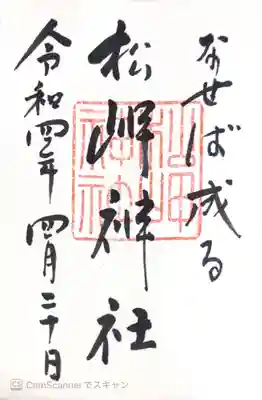 なせば成る
松岬神社
令和四年 四月二十日
CS CamScanner でスキャン